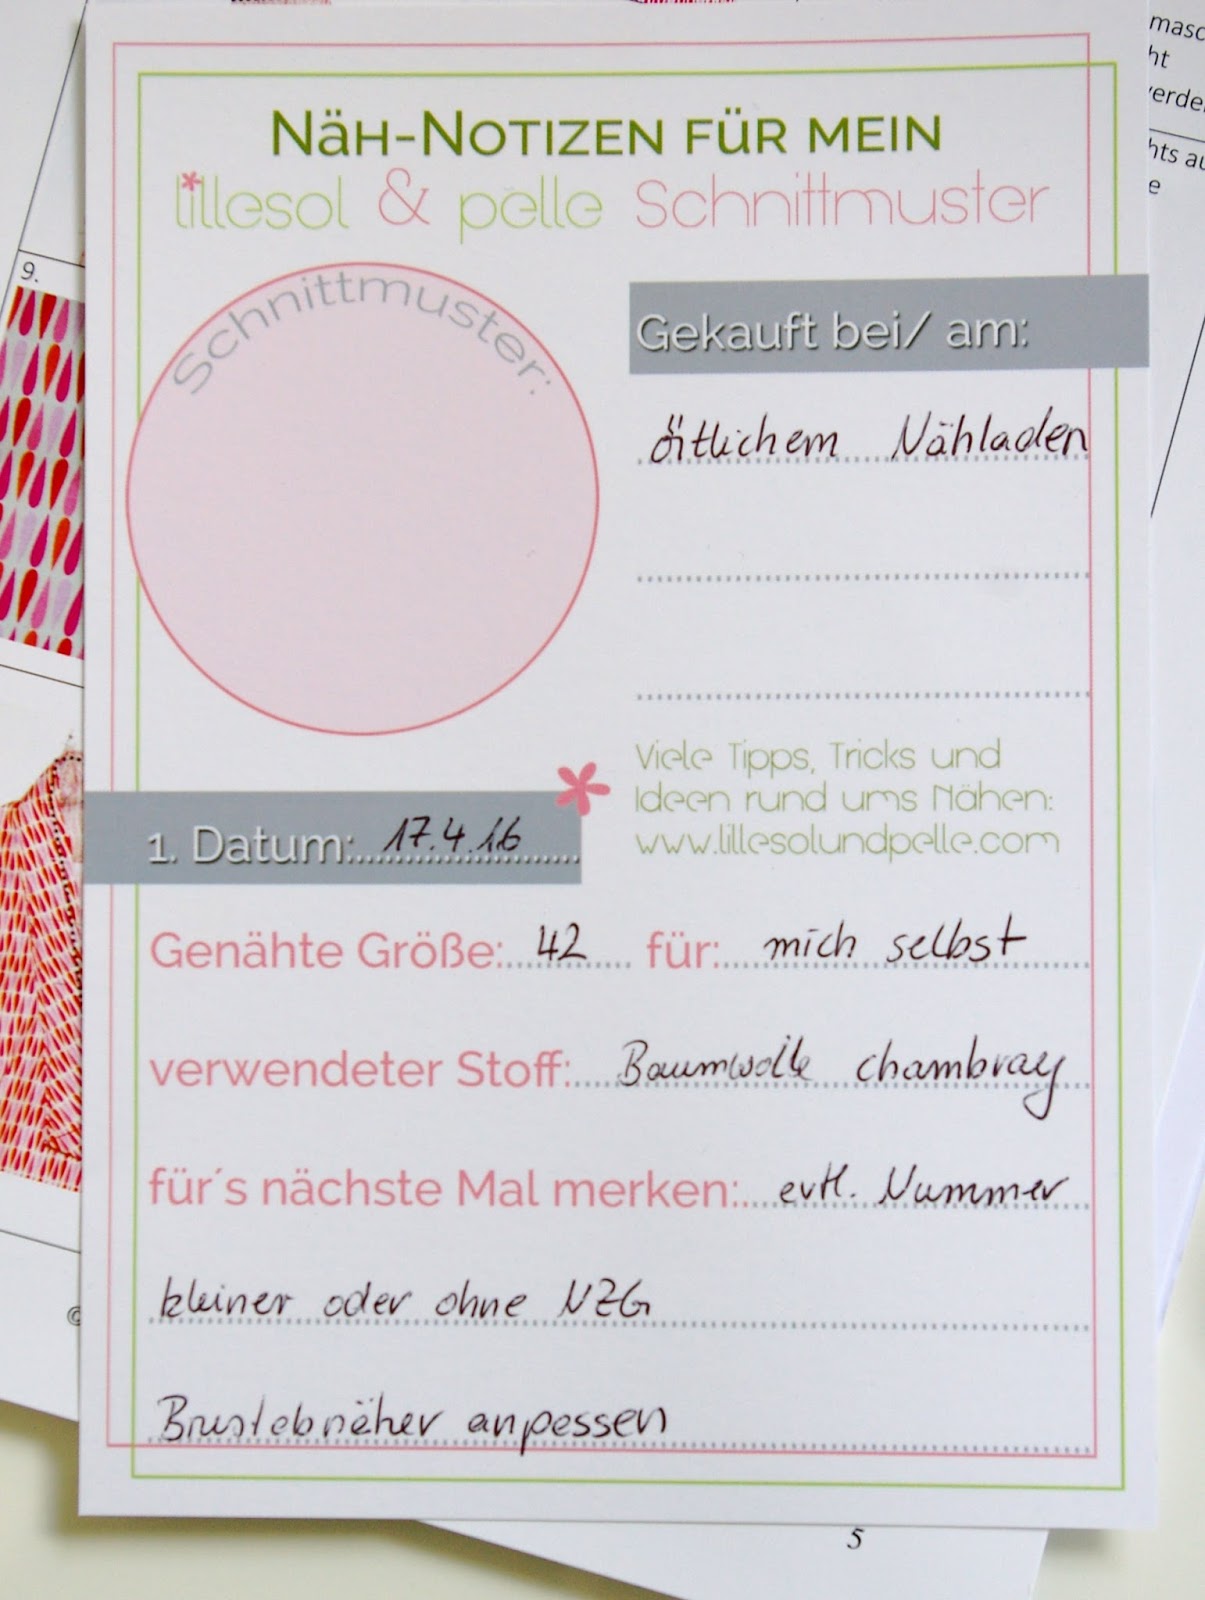 NÄH-NOTIZEN FÜR MEIN
lillesol & pelle Schnittmuster
Schnittmuster:
Gekauft bei/ am:
örtlichem Nähladen
Viele Tipps, Tricks und
Ideen rund ums Nähen:
www.lillesolundpelle.com
1. Datum: 17.4.16
Genähte Größe: 42 für: mich selbst
verwendeter Stoff: Baumwolle chambray
für´s nächste Mal merken: evtl. Nummer
kleiner oder ohne NZG
Brustabnäher anpassen
9.
©
5